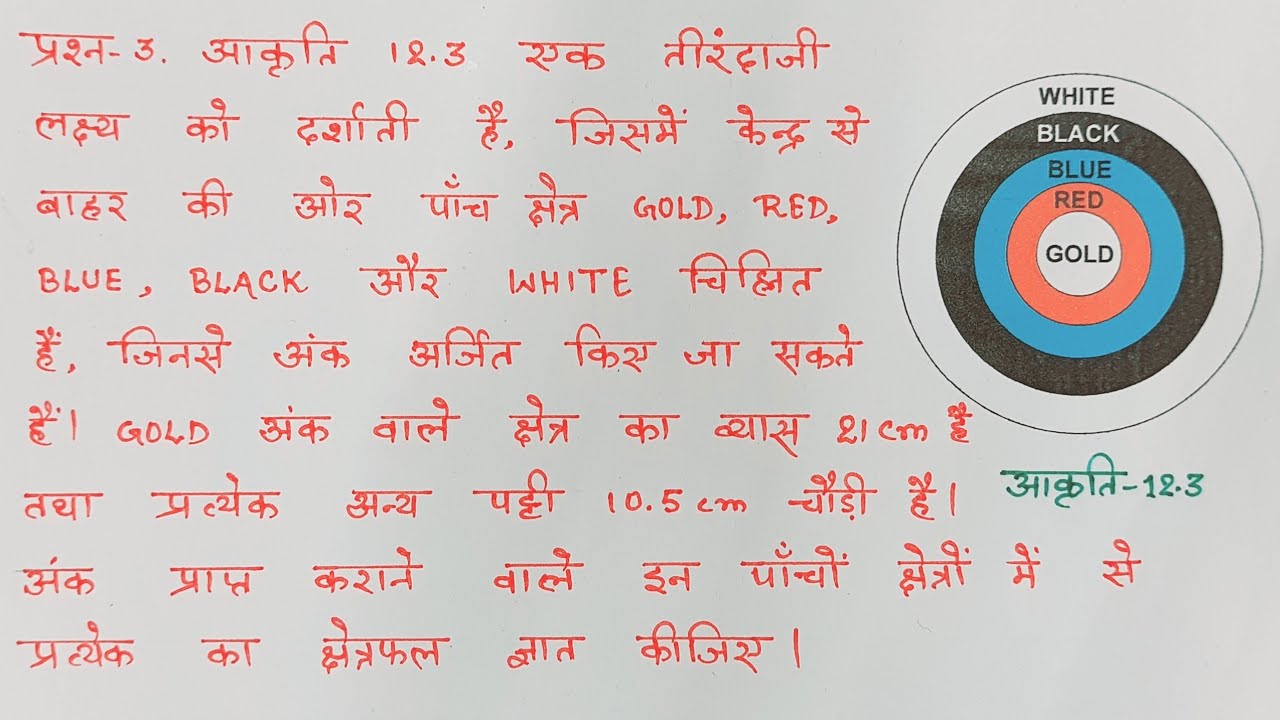 प्रश्न-3. आकृति 12.3 एक तीरंदाजी
लक्ष्य को दर्शाती है, जिसमें केन्द्र से
बाहर की ओर पाँच क्षेत्र GOLD, RED,
BLUE, BLACK और WHITE चिह्नित
हैं, जिनसे अंक अर्जित किए जा सकते
हैं। GOLD अंक वाले क्षेत्र का व्यास 21cm है
तथा प्रत्येक अन्य पट्टी 10.5cm चौड़ी है।
अंक प्राप्त कराने वाले इन पाँचों क्षेत्रों में से
प्रत्येक का क्षेत्रफल ज्ञात कीजिए।
WHITE
BLACK
BLUE
RED
GOLD
आकृति-12.3